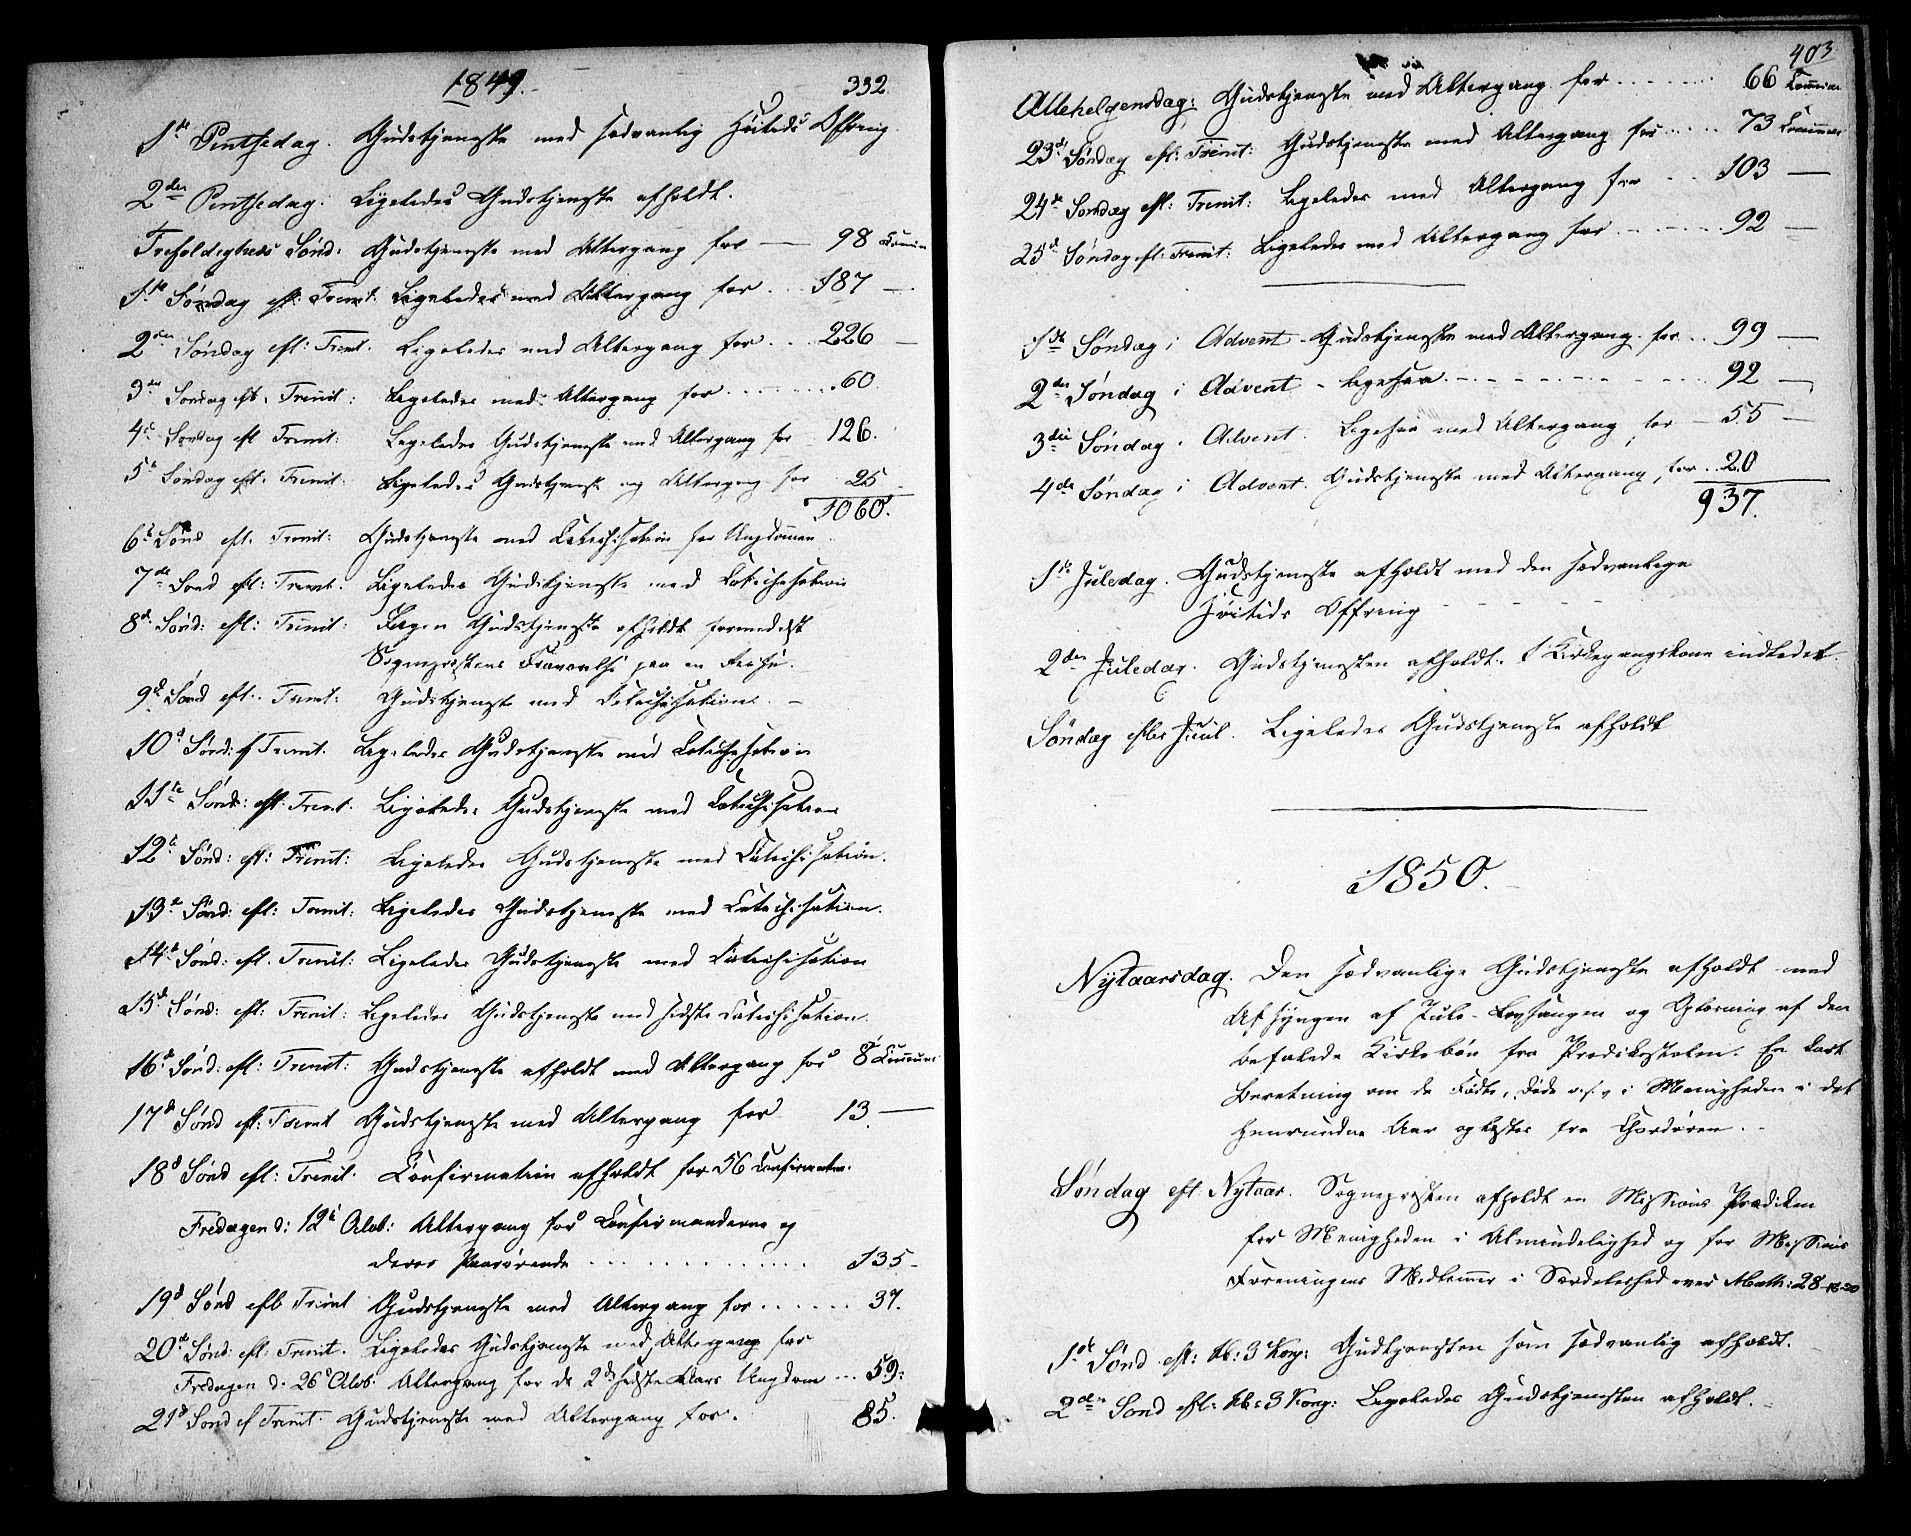 1849. 332
1ste Pintsedag. Gudstjeneste med sædvanlig Høitids Offring
2den Pintsedag. Ligeledes Gudstjeneste afholdt.
Trefoldigheds Sønd: Gudstjeneste med Altergang for — 98 Commun
1ste Søndag eft: Trinit: Ligeledes med Altergang for . . . 187 —
2den Søndag eft: Trinit. Ligeledes med Altergang for . . . 226 —
3die Søndag eft. Trinit: Ligeledes med Altergang for . . . . . 60
4de Søndag eft Trinit: Ligeledes Gudstjeneste med Altergang for . . 126.
5te Søndag eft. Trinit: Ligeledes Gudstjeneste og Altergang for 25
1060.
6te Sønd eft. Trinit: Gudstjeneste med Catechisation for Ungdommen
7de Sønd eft: Trinit. Ligeledes Gudstjeneste med Catechisation
8de Sønd: eft: Trinit: Ingen Gudstjeneste afholdt formedelst
Sognepræstens Fraværelse paa en Reise.
9de Sønd eft. Trinit: Gudstjeneste med Catechisation. —
10de Sønd: ef Trinit. Ligeledes Gudstjeneste med Catechisation
11te Sønd: eft: Trinit. Ligeledes Gudstjeneste med Catechisation
12te Sønd: eft: Trinit: Ligeledes Gudstjeneste med Catechisation.
13de Sønd: eft: Trinit: Ligeledes Gudstjeneste med Catechisation.
14de Sønd: eft. Trinit: Ligeledes Gudstjeneste med Catechisation
15de Sønd: eft: Trinit: Ligeledes Gudstjeneste med sidste Catechisation.
16de Sønd: eft: Trinit: Gudstjeneste afholdt med Altergang for 8 Commun:
17de Sønd eft: Trinit Gudstjeneste med Altergang for 13. —
18de Sønd eft: Trinit. Confirmation afholdt for 56 Confirmander.
Fredagen d: 12te Octob: Altergang for Confirmanderne og
deres Paarørende . . . . . . . . . . 135 -
19de Sønd eft Trinit Gudstjeneste med Altergang for . . . . . . 37.
20de Sønd: eft: Trinit. Ligeledes Gudstjeneste med Altergang for
Fredagen d. 26de Octob. Altergang for de 2de sidste Aars Ungdom ... 59.
21de Sønd ef Trinit. Gudstjeneste med Altergang for. 85.
403
Allehelgensdag: Gudstjeneste med Altergang for . . . . . . . 66 Commun
23de Søndag eft: Trinit: Gudstjeneste med Altergang for . . . . . 73 Commun
24de Søndag eft: Trinit: Ligeledes med Altergang for . . . 103 —
25de Søndag eft. Trinit: Ligeledes med Altergang for . . . . . . 92 —
1ste Søndag i Advent - Gudstjeneste med Altergang for . . 99 —
2den Søndag i Advent - Ligesaa . - - - - - - - - - - 92 —
3die Søndag i Advent. Ligesaa med Altergang for — 55 —
4de Søndag i Advent. Gudstjeneste med Altergang for . . 20
937.
1ste Juledag. Gudstjeneste afholdt med den sædvanlige
Høitids Offring - - - - - -
2den Juledag. Gudstjenesten afholdt. 1 Kirkegangskone indledet.
Søndag efter Juul. Ligeledes Gudstjeneste afholdt
1850.
Nytaarsdag. Den sædvanlige Gudstjeneste afholdt med
Afsyngen af Jule-Lovsangen og Oplæsning af den
befalede Kirkebøn fra Prædikestolen. En kort
Beretning om de Fødte, Døde o.s.v i Menigheden i det
henrundne Aar oplæstes fra Chordøren. -
Søndag eft. Nytaar. Sognepræsten afholdt en Missions Prædiken
for Menigheden i Almindelighed og for Missions
Foreningens Medlemmer i Særdeleshed over Math: 28 18-20
1ste Sønd eft: Hl: 3 Kong: Gudstjenesten som sædvanlig afholdt.
2den Sønd eft: Hl: 3 Kong: Ligeledes Gudstjenesten afholdt.